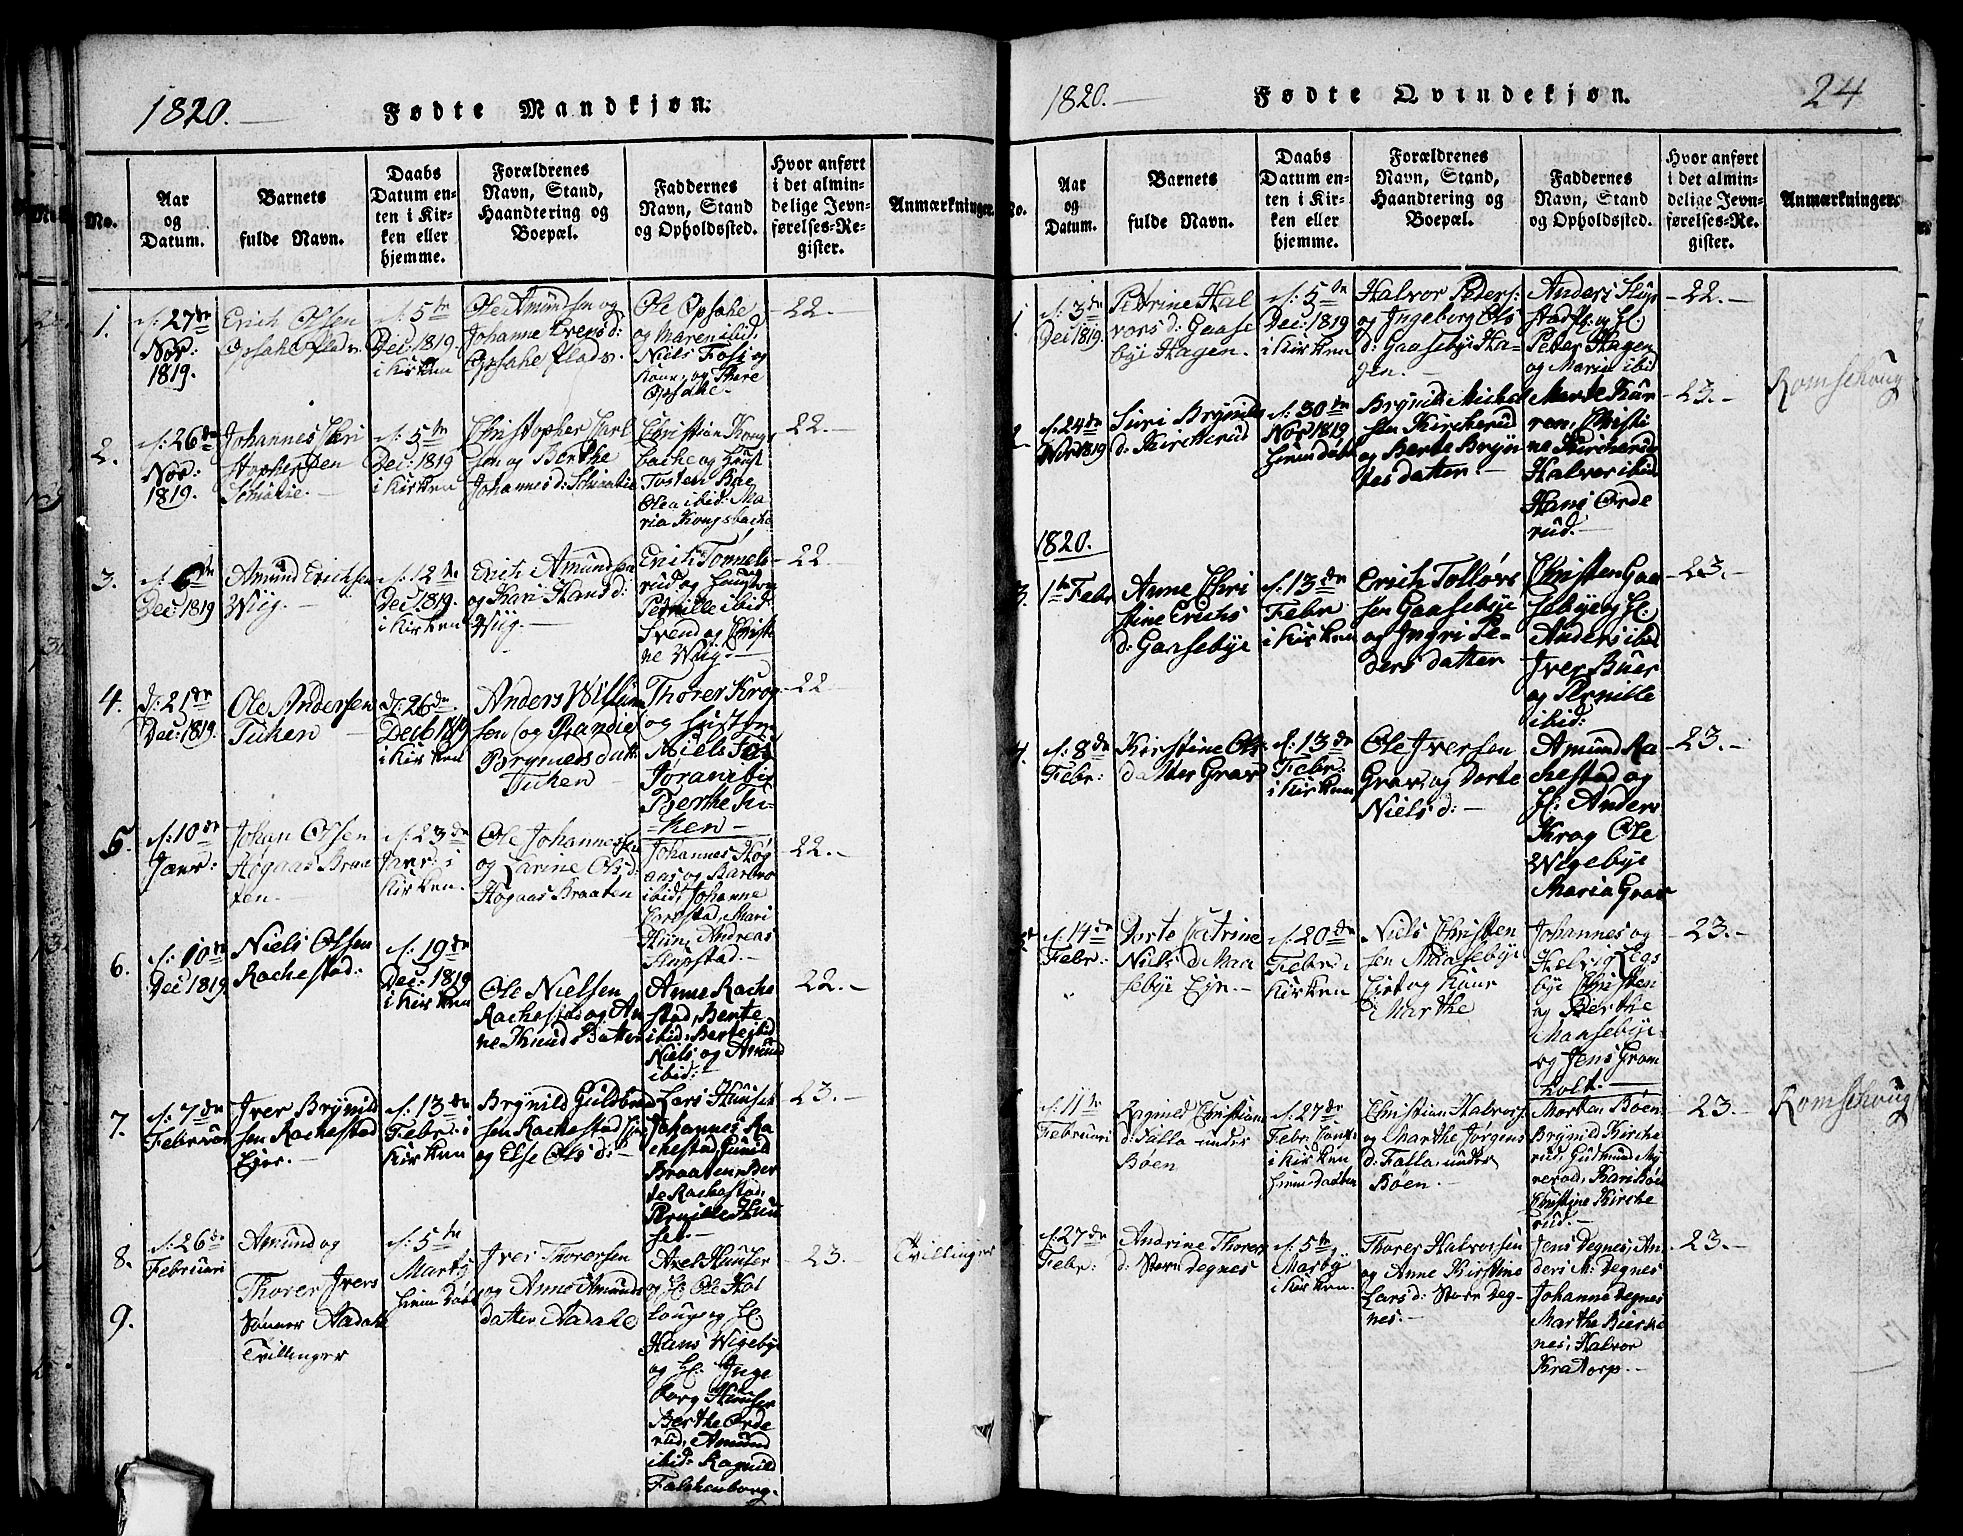 1820.
Fødte Mandkjøn.
No.
Aar
og
Datum.
Barnets
fulde Navn.
Daabs
Datum en-
ten i Kir-
ken eller
hjemme.
Forældrenes
Navn, Stand,
Haandtering og
Boepæl.
Faddernes
Navn, Stand
og Opholdssted.
Hvor anført
i det almin-
delige Jevn-
førelses-Re-
gister.
Anmærkninger.
1.
d: 27de
Nov:
1819.
Erich Olsen
Opsahl Plads
d: 5te
Dec: 1819
i Kirken
Ole Amundsen og
Johanne Evers d:
Opsahl Plads.
Ole Opsahl
og Maren ibid,
Niels Fosi og
Kone, og Thore
Opsahl.
22.
2.
d: 26de
Nov:
1819.
Johannes Chri
stophersen
d: 5te
Dec: 1819
i Kirken
Christopher Carl
sen og Berthe
Johannes d:
Christian Kongs
bache og Hust
Tosten
Olea ibid: Ma
ria Kongsbache
22.
3.
d: 6te
Dec: 1819
Amund Erichsen
Wiig.
d: 12te
Dec: 1819.
i Kirken
Erich Amundsen
og Kari Hans d:
Wiig.
Erich Tonnels
rud og Hustru
Pernille ibid
Svend og Christi
ne Wiig.
22
4.
d: 21de
Dec: 1819.
Ole Andersen
Tuken
d: 26de
Decb 1819
i Kirken
Anders Willum
sen og Randie
Brynels datt
Tuken
Thorer Krog
og Hustru
Niels Fosi
Joran ibid
Berthe Tu-
ken
22
5.
d: 10de
Janr:
Johan Olsen
Høgaas Braa
ten.
d: 23de
Janr: i
Kirken.
Ole Johannessen
og Karine Ols d:
Høgaas Braaten
Johannes Høg
aas og Barbro
ibid, Johanne
stad, Mari
Hun, Andreas
Slupstad.
22.
6.
d: 10de
Dec 1819
Niels Olsen
Rachestad:
d: 19de
Dec: 1819
i Kirken
Ole Nielsen
Rachestad og An
ne Knuds Datter
Anne Rache
stad, Berte
ibid, Berte ibid
Niels og Amund
ibid:
22.
7.
d: 7de
Februar
Iver Brynild
sen Rachestad
Eier.
d: 13de
Febr: i
Kirken
Brynild Guldbrand
sen Rachestad Eier
og Else Ols d:
Lars Hunseb
Johannes Ra
chestad, Gunild
Braaten, Ber
te Rachestad,
Pernille Hun
seb.
23.
8.
9.
d: 26de
Februari
Amund og
Thorer Ivers
Sønner Aadahl
Tvillinger
d: 5te
Marty
Iver Thorersen
og Anne Amunds
datter Aadahl
Axel Hunseb
og H: Ole Hol
og H:
Hans Wigebye
og H: Inge
borg Hunseb
Berthe Orde
rud, Amund
ibid: Ragnild
Falchenborg.
23.
Tvillinger
1820.
Fødte Qvindekjøn.
24
No.
Aar
og
Datum.
Barnets
fulde Navn.
Daabs
Datum en-
ten i Kir-
ken eller
hjemme.
Forældrenes
Navn, Stand,
Haandtering og
Boepæl.
Faddernes
Navn, Stand
og Opholdssted.
Hvor anført
i det almin-
delige Jevn-
førelses-Re-
gister.
Anmærkninger.
1.
d: 3de
Dec 1819.
Petrine Hal
vors d: Gaase
bye Hagen.
d: 5te
Dec: 1819
i Kirken
Halvor Peters:
og Ingeborg Ols
d: Gaasebye Ha-
gen.
Anders Slip
stad: og H:
Peter Hagen
og Marie ibid
22.
2
d: 24de
Nov 1819
Siri Brynilds
d: Kircherud
d: 30te
Nov 1819
Brynild Michel
sen Kircherud
og Berte Bryn
tes datter
Marte Kur
ran, Christi
ne Kircherud
Halvor ibid
Hans Orde
rud.
23.
Romschoug
1820.
3.
1te Febr
Anne Chri
stine Erichs
d: Gaasebye
d: 13de
Febr
i Kirken
Erich Tollevs
sen Gaasebye
og Ingri Pe-
ders datter
Christen Gaa
sebye og H:
Anders ibid
Iver Buer
og Pernille
ibid:
23.
4.
d: 8de
Febr:
Kirstine Ols
datter Grav
d: 13de
Febr:
i Kirken
Ole Iversen
Grav og Dorte
Niels d:
Amund Ra
chestad og
H: Anders
Krog Ole
Wigebye
Maria Grav
23.
d: 14de
Febr:
Dorte Catrine
Niels d: Maa
sebye Eje.
d: 20de
Febr: i
Kirken
Niels Christen
sen Maasebye
Eier og Kone
Marthe
Johannes og
Helvig Legs
bye Christen
og Berthe
Maasebye
og Jens Grøn
holt.
23.
d: 11te
Februari
Ragnild Christians
d: Falla under
Böen
d: 27de
Febr.
i Kirken
Christian Halvors:
og Marthe Jörgens
d: Falla under
Böen.
Morten Böen
Brynild Kirche
rud, Gudmund My
rerod, Kari Böen
Christine Kirche
rud.
23.
Romschoug
d: 27de
Febr:
Andrine Thorer
d: Store Degnes
d: 5te
Marty
i Kirken.
Thorer Halvorsen
og Anne Kirstine
Lars d: Store Deg-
nes.
Jens Degnes, An
ders M: Degnes
Johanne Degnes
Marthe Bierke
nes, Halvor
Kratorp.
23.